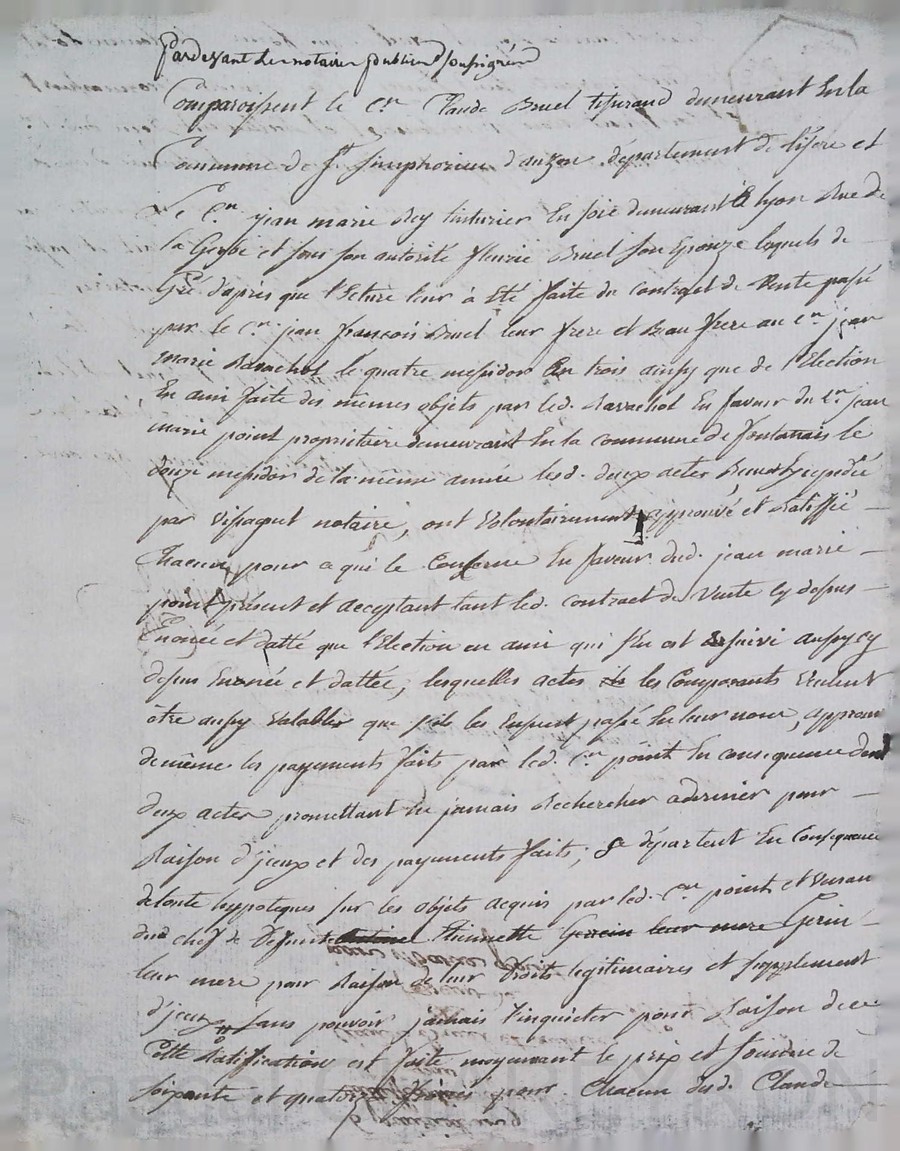 Pardevant les notaires publics soussignés
Comparoissent le c.en Claude Bruel tisserand demeurant En la
Commune de s.t simphorien d'auzon département de l'isere et
Le C.en jean marie Rey tinturier En soie demeurant à lyon Rue de
la Gerbe et sous son autorité fleurie Bruel son Epouze lequels de
Gré d'après que l'ecture leur à Eté faite du contract de Vente passé
par le c.en jean françois Bruel leur frere et Beau frere au c.en jean
marie Ravachol le quatre messidor an trois ainsy que de l'Election
En ami faite des mêmes objets par led. Ravachol En faveur du c.en jean
marie point propriétaire demeurant En la commune de fontanais le
douze messidor de la même année lesd. deux actes Reçus Expediée
par Vissaguet notaire, ont Volontairement approuvé et Ratiffié
Chacun pour ce qui le Conserne En faveur dud. jean marie
point présent et acceptant tant led. contract de Vente cy dessus
Enoncé et datté que l'Election en ami qui s'en est Ensuivi aussy cy
dessus Enonée et dattée, lesquelles actes les Comparants Veulent
être aussy Valables que s'ils les Eussent passé En leur nom, approuv
de même les payements faits par led. c.en point En consequence desd
deux actes promettant ne jamais Rechercher a dernier pour
Raison d'jceux et des payements faits, se départent En Consequence
de toute hypoteques sur les objets acquis par led. C.en point et Venan
du chef de Défunte Etiennette Gerein leur mere Gerin
leur mere pour Raison de leur droits legitimaires et supplement
d'jceux sans pouvoir jamais l'inquieter pour Raison de ce
Cette Ratiffication est faite moyennant le prix et somme de
soixante et quatorze pour Chacun desd. Claude